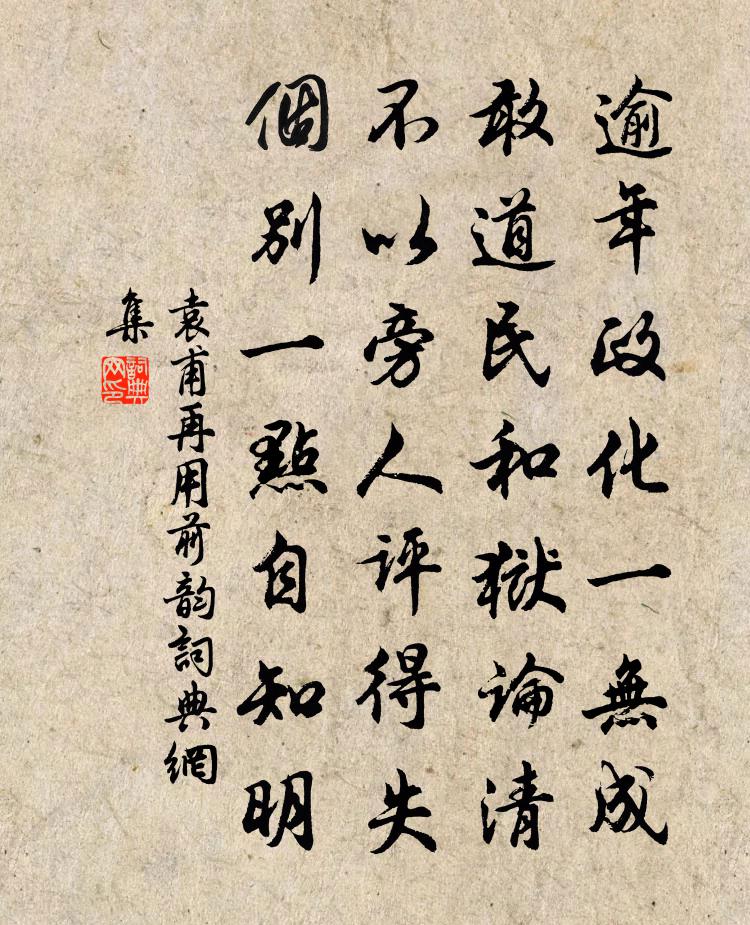 逾年政化一無成
敢道民和獄論清
不以旁人評得失
個別一點自知明
袁甫再用前韵詞典網
集
詞典网印